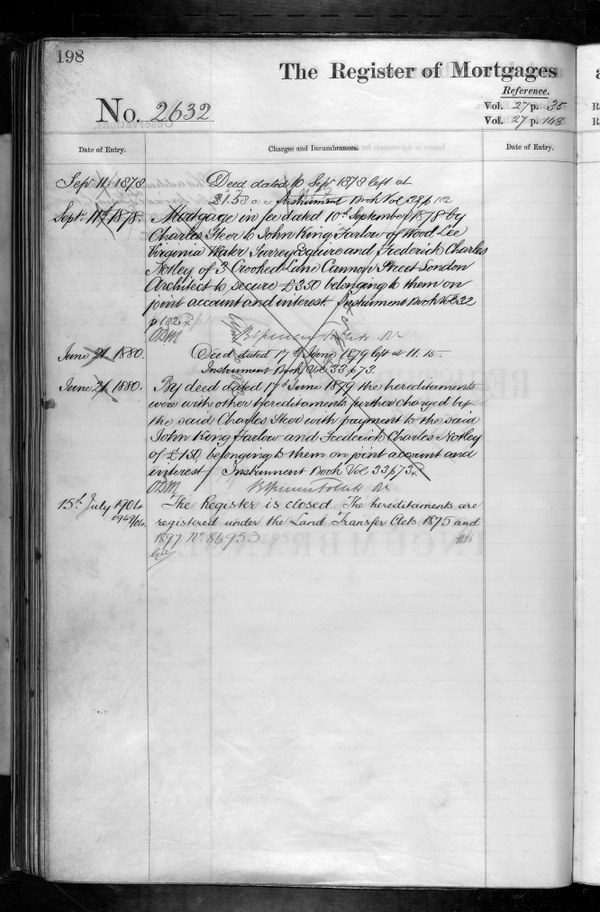 198
The Register of Mortgages
Reference.
No. 2632
Vol. 27 p. 35
Vol. 27 p. 148
Date of Entry.
Charges and Incumbrances.
Date of Entry.
Sept 11. 1878
Deed dated 10 Sept 1878 left at
Instrument Book Vol 32 p 102
Sept. 11th 1878.
Mortgage in fee dated 10th September 1878 by
Charles to John King Farlow of Wood Lee
Virginia Water Surrey Esquire and Frederick Charles
Notley of 3 Crooked Lane Cannon Street London
Architect to secure £350 belonging to them on
joint account and interest. Instrument Book Vol 32
p 102
June 21 1880.
Deed dated 17th June 1879 left at 11.15
Instrument Book Vol. 33 p 73.
June 21 1880.
By deed dated 17th June 1879 the hereditaments
were with other hereditaments further charged by
the said Charles with payment to the said
John King Farlow and Frederick Charles Notley
of £150 belonging to them on joint account and
interest Instrument Book Vol 33 p 73
15th July 1904
The Register is closed The hereditaments are
registered under the Land Transfer Acts 1875 and
1897 No 86953